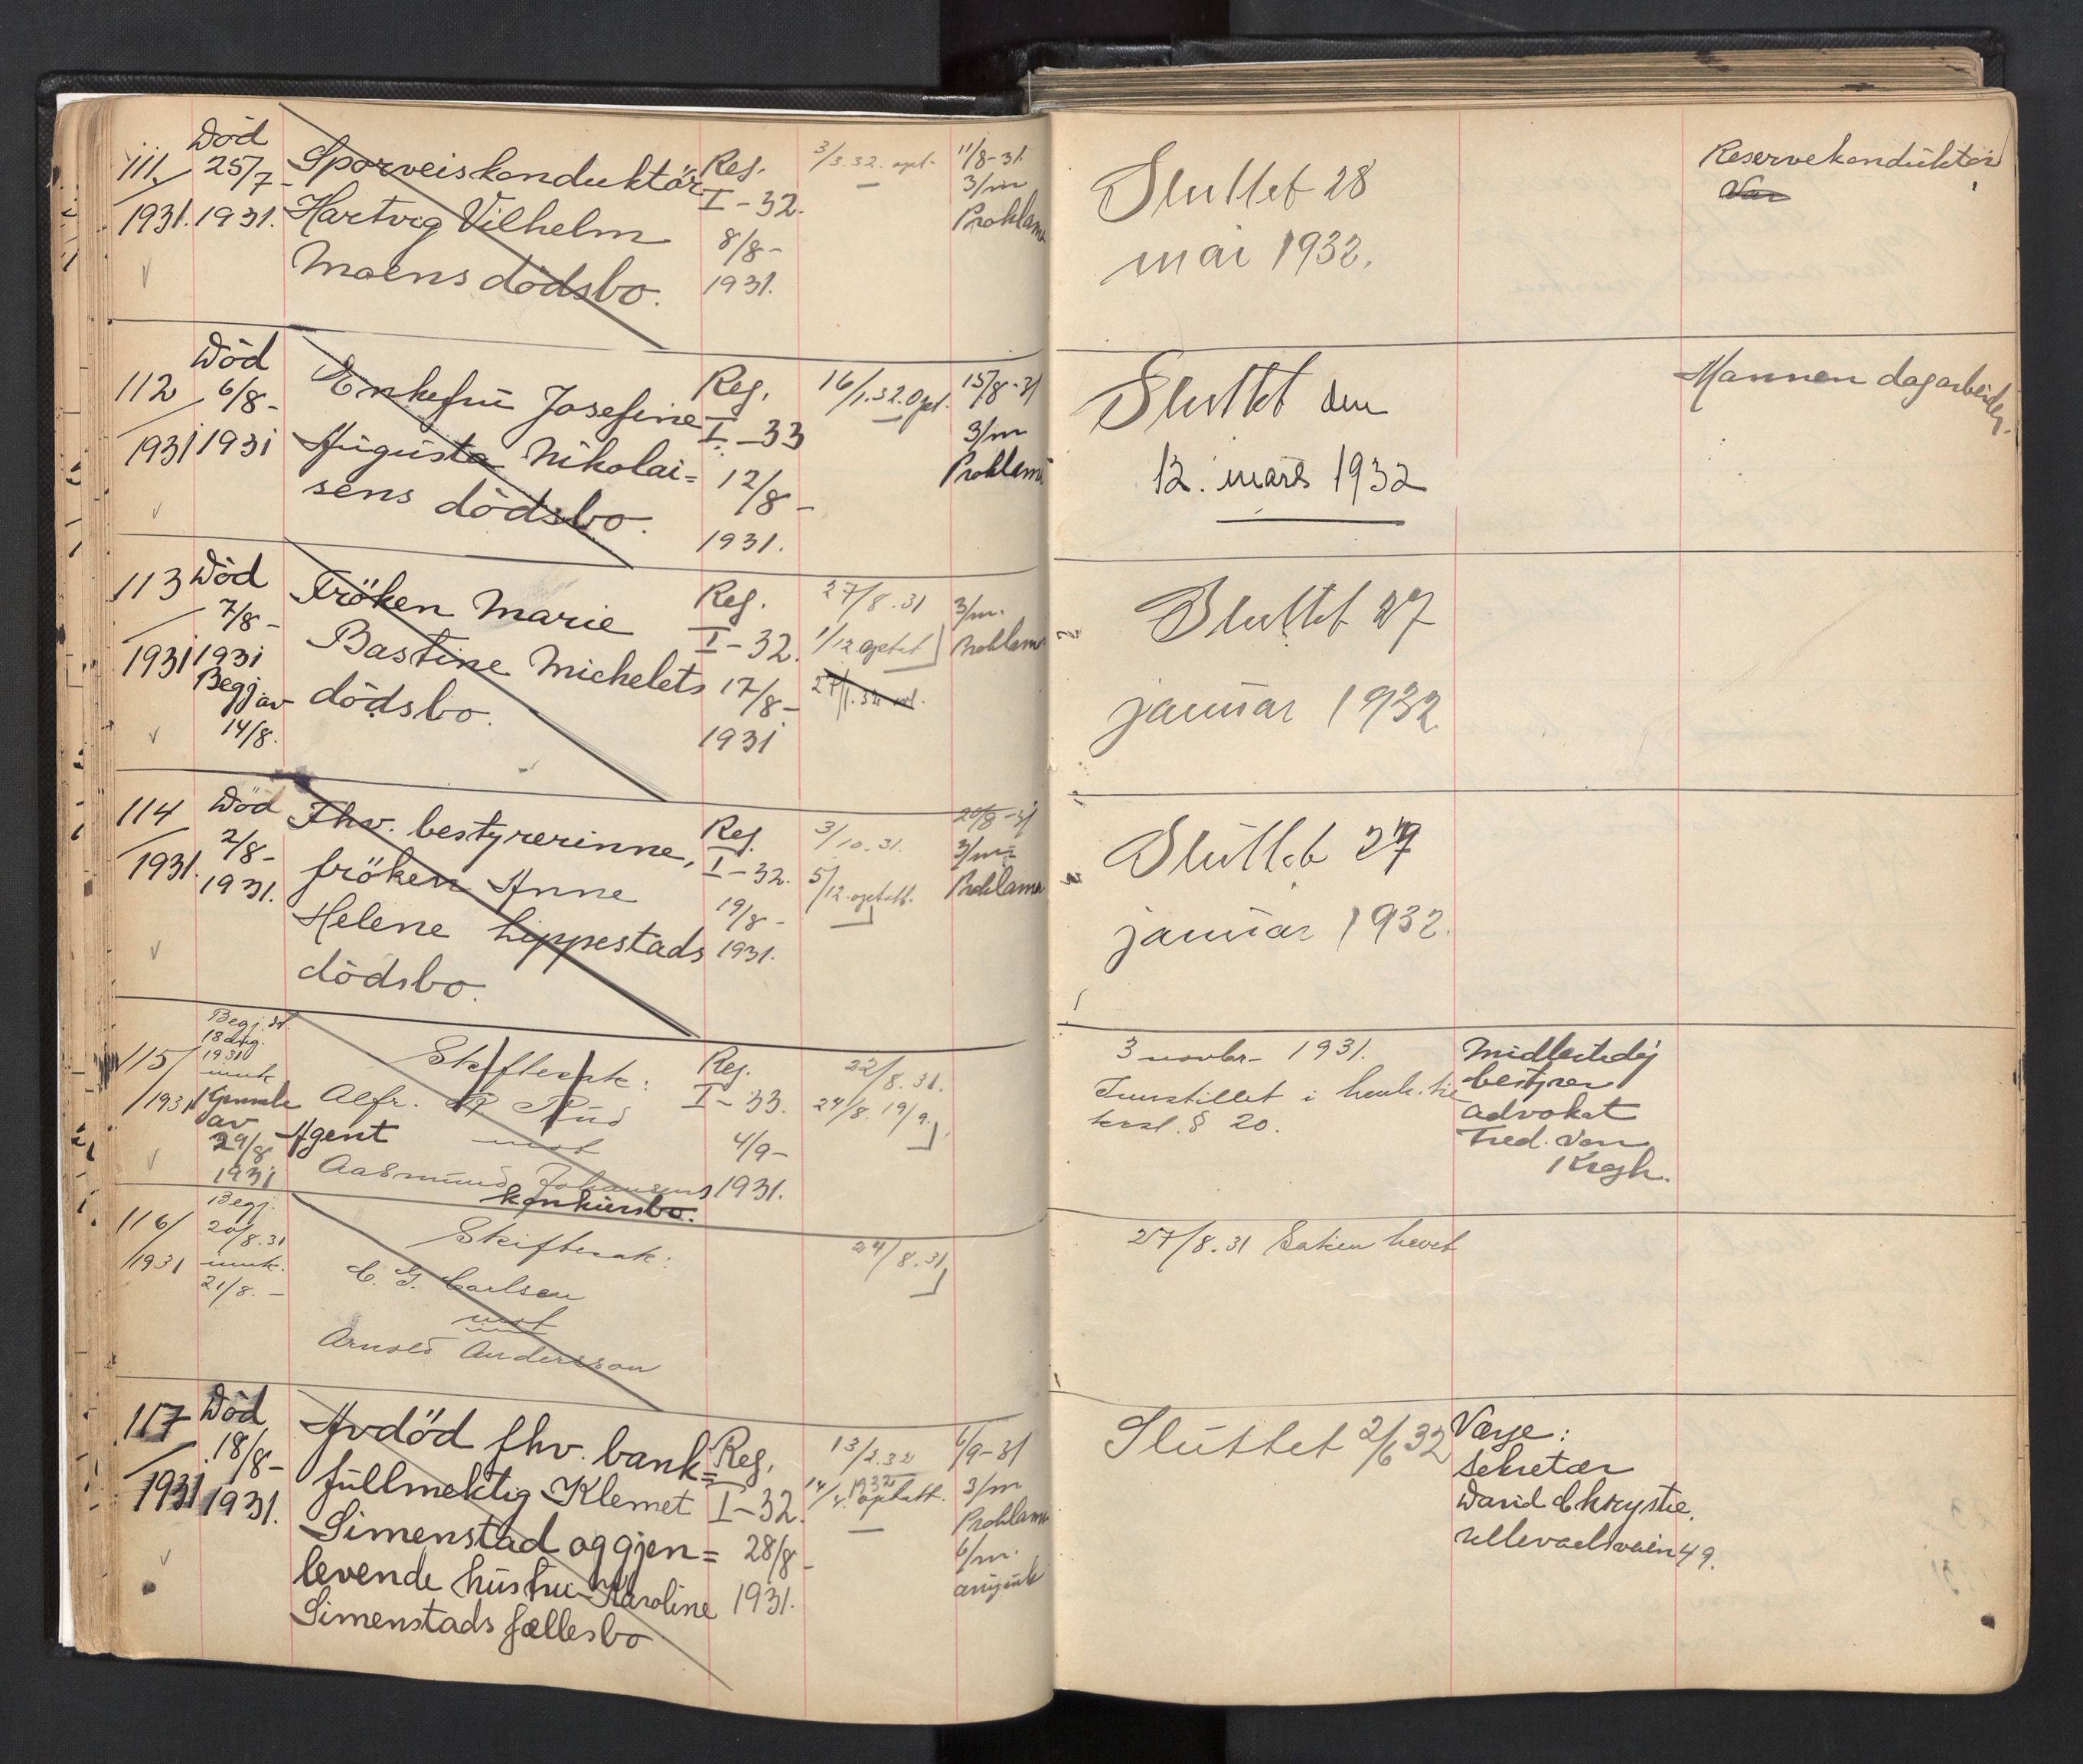 111. / 1931.
Död
25/7 -
1931.
Sporveiskonduktör
Hartvig Vilhelm
Moens dödsbo.
Reg.
I - 32.
8/8 -
1931.
3/3.32. opt.
11/8-31.
3/m
Proklama
Sluttet 28
mai 1932.
Reservekonduktör
112 / 1931
Död
6/8 -
1931
Enkefru Josefine
Augusta Nikolai=
sens dödsbo.
Reg.
I - 33
12/8 -
1931.
16/1.32. Opt.
15/8-31
3/m
Proklama
Sluttet den
12. mars 1932
Mannen dagarbeider.
113 / 1931
Död
7/8 -
1931
Begj av
14/8.
Fröken Marie
Bastine Michelets
dödsbo.
Reg.
I - 32.
17/8 -
1931
27/8.31
1/12 optat
3/m.
Proklama
Sluttet 27
januar 1932
114 / 1931.
Död
2/8 -
1931.
Fhv. bestyrerinne,
fröken Anne
Helene Lippestads
dödsbo.
Reg.
I - 32.
19/8 -
1931.
3/10.31.
5/12. optatt.
20/8-31
3/m
Proklama
Sluttet 27
januar 1932.
115 / 1931
Begj.
18 aug.
1931
mnk
av
29/8
1931
Skiftesak:
Alfr. Rud
mot
Agent
Aasmund Johansens
konkursbo.
Reg.
I - 33.
4/9 -
1931.
22/8.31.
24/8. 19/9.
3 novbr. 1931.
Innstillet i henh. til
§ 20.
Midlertidig
bestyrer
advokat
Fred. von
Krogh.
116 / 1931
Begj.
20/8.31
mnk.
21/8. -
Skiftesak:
C. G. Carlsen
mot
Arnold Andersson
24/8.31
27/8.31 Saken hevet
117 / 1931
Död
18/8 -
1931.
Avdöd fhv. bank=
fullmektig Klemet
Simenstad og gjen=
levende hustru Karoline
Simenstads fællesbo
Reg.
I - 32.
28/8 -
1931.
13/2.32
14/4. 1932 optatt.
6/9-31
3/m
Proklama
6/m.
Sluttet 2/6 32
Verge:
Sekretær
David Chrystie.
Ullevaalsveien 49.